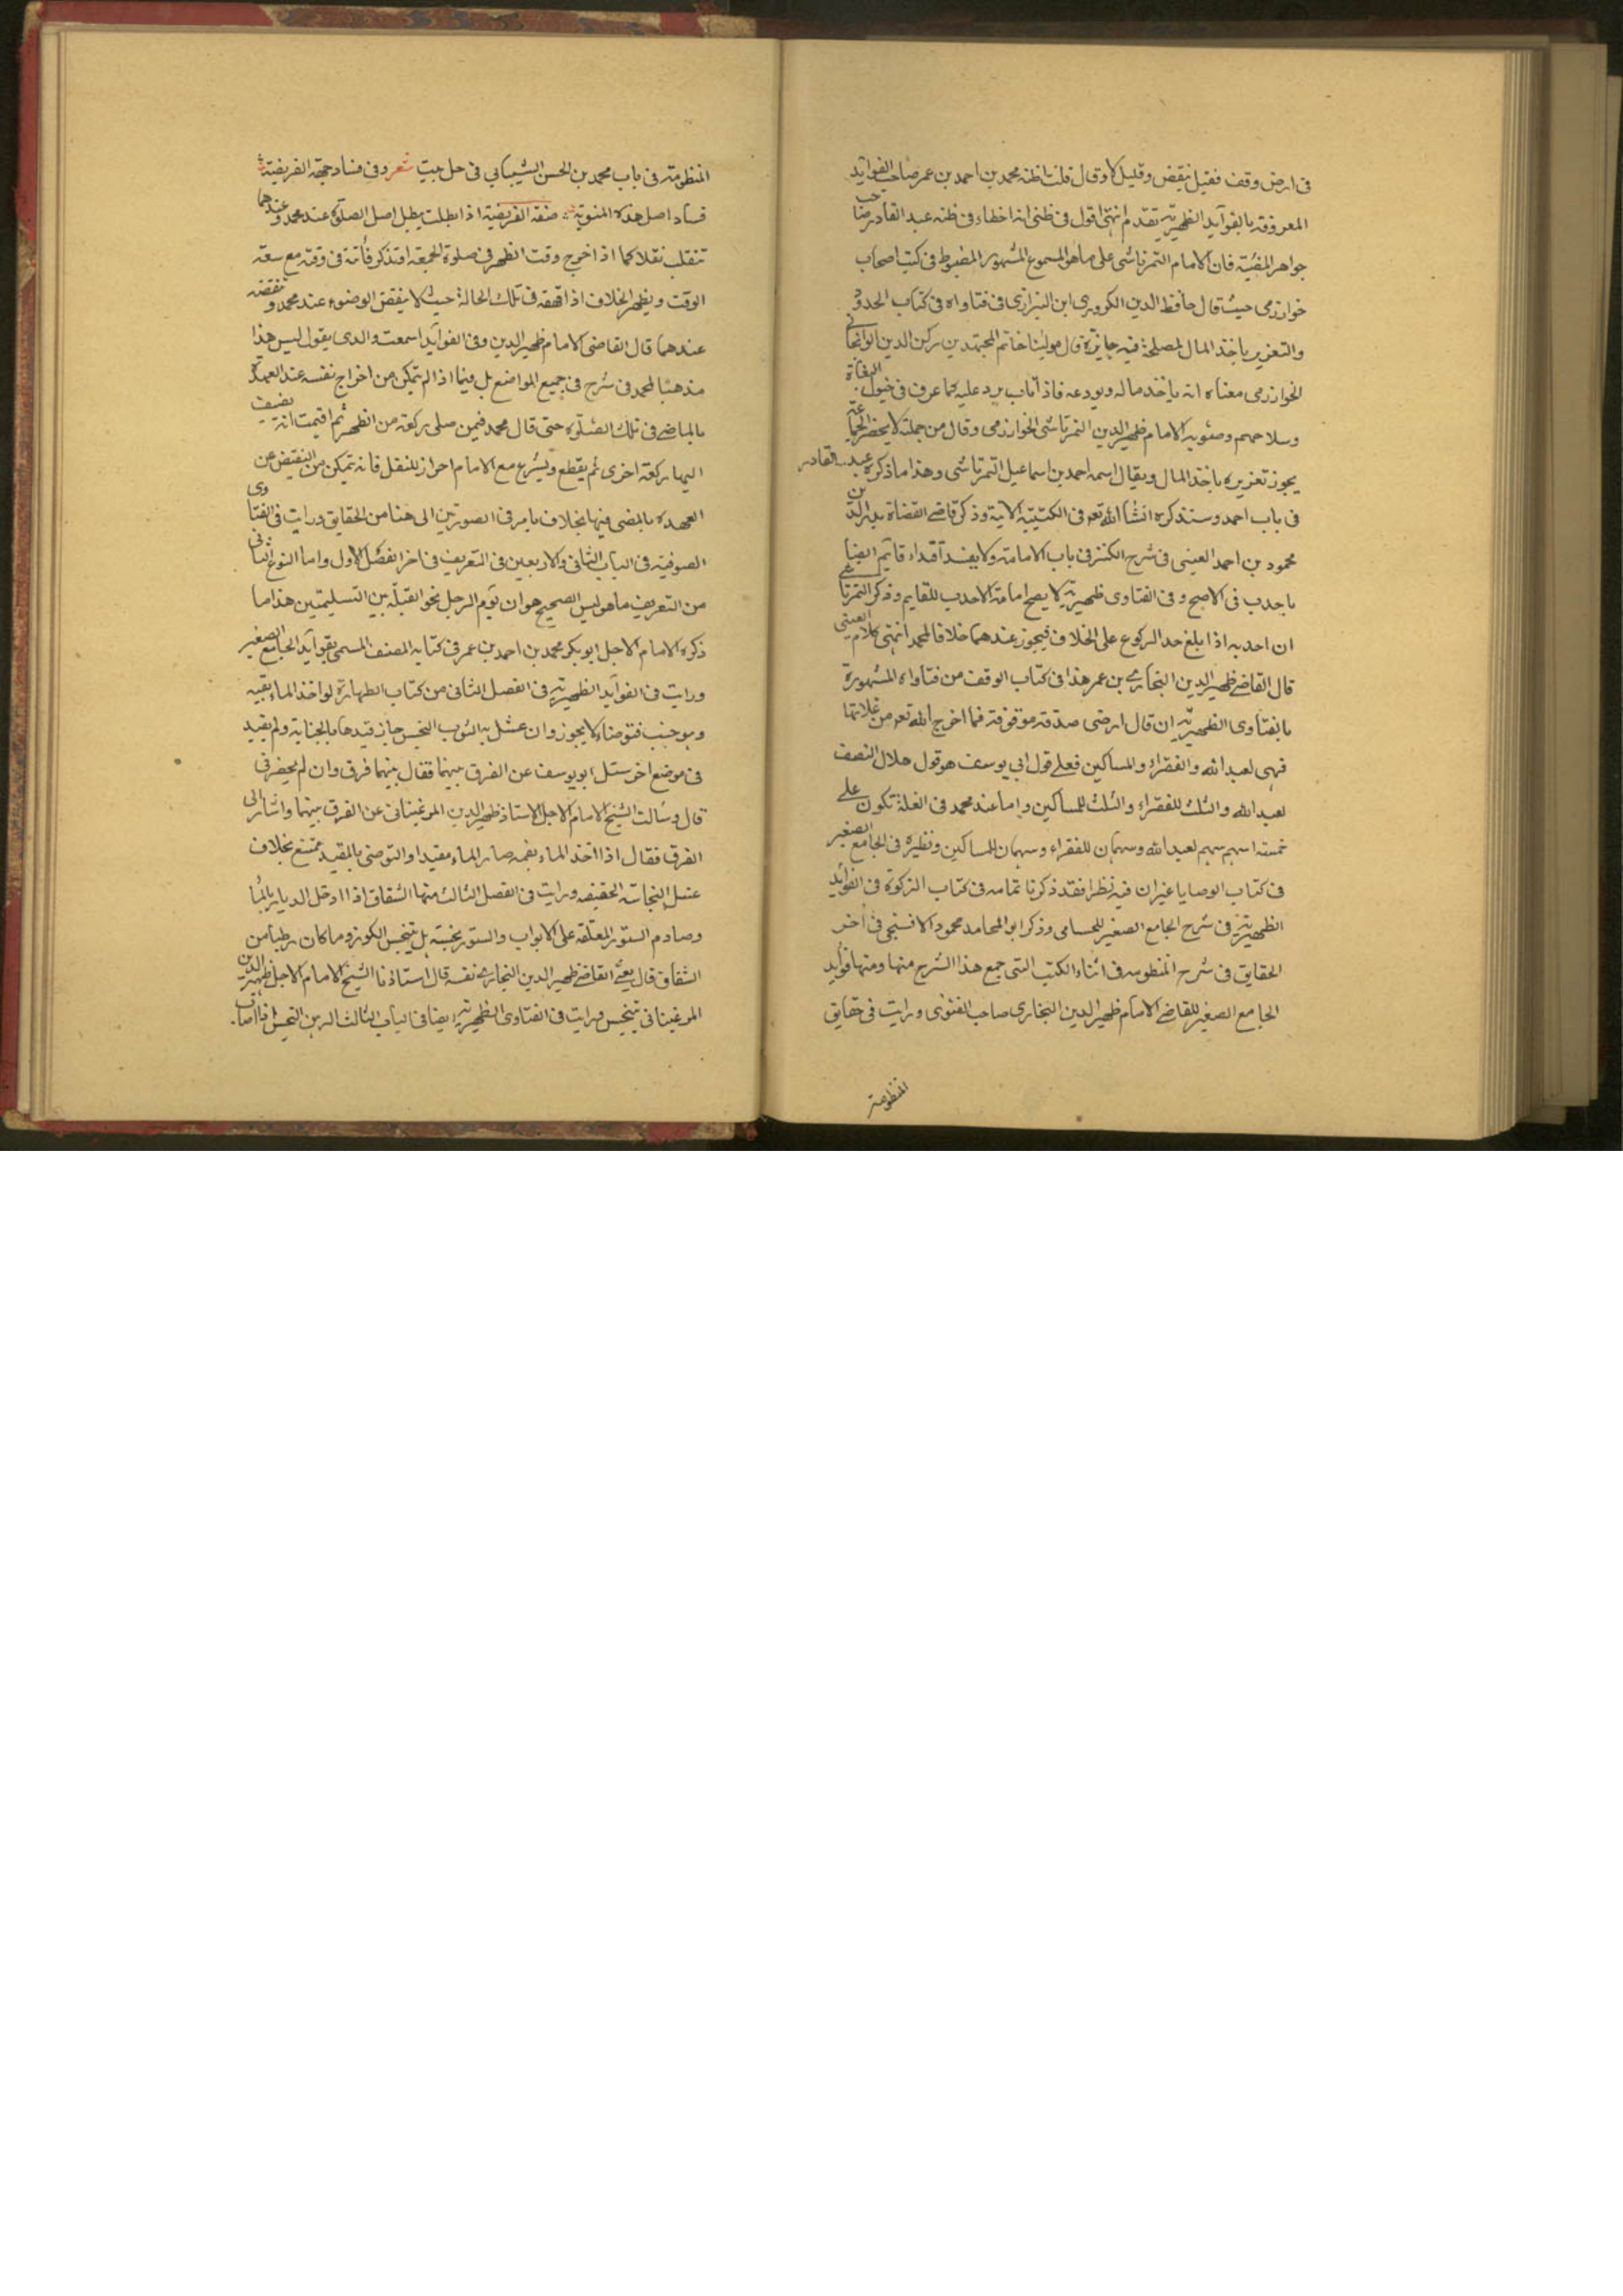 فى ارض وقف فقيل ينقض وقيل لا وقال قلت اظنه محمد بن احمد بن عمر صاحب الفوايد
المعروفة بالفوآيد الظهيرية تقدم انتهى اقول فى ظنى انه اخطاء فى ظنه عبد القادر صاحب
جواهر المضئية فان الامام التمرتاشى على ما هو المسموع المشهور المضبوط فى كتب اصحاب
خوارزمى حيث قال حافظ الدين الكرويرى ابن البزازى فى فتاواه فى كتاب الحدود
والتعزير ياخذ المال لمصلحة فيه جايزة قال مولينا خاتم المجتهدين ركن الدين الوانجانى
الخوارزمى معناه انه ياخذ ماله ويودعه فاذا تاب يرد عليه كما عرف فى خيول البغاة
وسلاحهم وصوبه الامام ظهير الدين التمرتاشى الخوارزمى وقال من جملة لا يحضر الجماعة
يجوز تعزيره ياخذ المال ويقال اسمه احمد بن اسماعيل التمرتاشى وهذا ما ذكره عبد القادر
فى باب احمد وسنذكره انشا الله تعم فى الكتيبة الاتية وذكر قاضى القضاة بدر الدين
محمود بن احمد العينى فى شرح الكنز فى باب الامامة ولا يفسد اقتداء قايم ايضا
باحدب فى الاصح وفى الفتاوى ظهيرية لا يصح امامة الاحدب للقايم وذكر التمرتاشى
ان احدبه اذا بلغ حد الركوع على الخلاف فيجوز عندهما خلافا لمحمد انتهى كلام العينى
قال القاضى ظهير الدين البخارى بن عمر هذا فى كتاب الوقف من فتاواه المشهورة
بالفتاوى الظهيرية ان قال ارضى صدقة موقوفة فما اخرج الله تعم من غلاتها
فهى لعبد الله والفقراء والمساكين فعلى قول ابى يوسف هو قول هلال النصف
لعبد الله والثلث للفقراء والثلث للمساكين واما عند محمد فى الغلة تكون على
خمسة اسهم سهم لعبد الله وسهمان للفقراء وسهمان للمساكين ونظيره فى الجامع الصغير
فى كتاب الوصايا غير ان فيه نظرا فقد ذكرنا تمامه فى كتاب الزكوة فى الفوائد
الظهيرية فى شرح الجامع الصغير للحسامى وذكر ابو المحامد محمود الافسنجى فى اخر
الحقايق فى شرح المنظومه فى اثناء الكتب التى جمع هذا الشرح منها ومنها فوايد
الجامع الصغير للقاضى الامام ظهير الدين البخارى صاحب الفتوى ورايت فى حقايق
المنظومة
المنظومة فى باب محمد بن الحسن الشيبانى فى حل بيت شعر وفى فساد جهة الفريضة
فساد اصل هذه المنوية صفة الفريضة اذا بطلت يبطل اصل الصلوة عند محمد وعندهما
تنقلب نفلا كما اذا خرج وقت الظهر فى صلوة الجمعة او تذكر فائتة فى وقته مع سعة
الوقت ويظهر الخلاف اذا قهقه فى تلك الحالة حيث لا ينقض الوضوء عند محمد وينقضه
عندهما قال القاضى الامام ظهير الدين وفى الفوآيد سمعت والدى يقول ليس هذا
مذهبا لمحمد فى شرح فى جميع المواضع بل فيما اذا لم يتمكن من اخراج نفسه عند العهدة
بالماضى فى تلك الصلوة حتى قال محمد فيمن صلى ركعة من الظهر ثم اقيمت انه يضيف
اليها ركعة اخرى ثم يقطع ويشرع مع الامام احراز للنفل فانه تمكن من النقيض عن
العهدة بالمضى فيها بخلاف ما مر فى الصورتين الى هنا من الحقايق ورايت فى الفتاوى
الصوفية فى الباب الثانى والاربعين فى التعريف فى اخر الفصل الاول واما النوع الثانى
من التعريف ما هو ليس الصحيح هو ان يؤم الرجل نحو القبلة بين التسليمتين هذا ما
ذكره الامام الاجل ابو بكر محمد بن احمد بن عمر فى كتابه المصنف المسمى بفوآيد الجامع الصغير
ورايت فى الفوآيد الظهيرية فى الفصل الثانى من كتاب الطهارة لو اخذ الماء بفيه
وهو جنب فتوضاء لا يجوز وان غسل به الثوب النجس جاز قيدها بالجناية ولم يقيد
فى موضع اخر سئل ابو يوسف عن الفرق بينهما فقال بينهما فرق وان لم يحضرنى
قال وسالت الشيخ الامام الاجل الاستاذ ظهير الدين المرغينانى عن الفرق بينهما واشار الى
الفرق فقال اذا اخذ الماء بفمه صار الماء مقيدا والتوضى بالمقيد ممتنع بخلاف
غسل النجاسة الحقيقه ورايت فى الفصل الثالث منها الشقاق اذا ادخل
وصادم الستور المعلقة على الابواب والستور نجسة بل تنجس الكوز وما كان رطبا من
الشقاق قال يعنى القاضى ظهير الدين البخارى نفسه قال استاذنا الشيخ الامام الاجل ظهير الدين
المرغينانى تنجس ورايت فى الفتاوى الظهيرية ايضا فى الباب الثالث